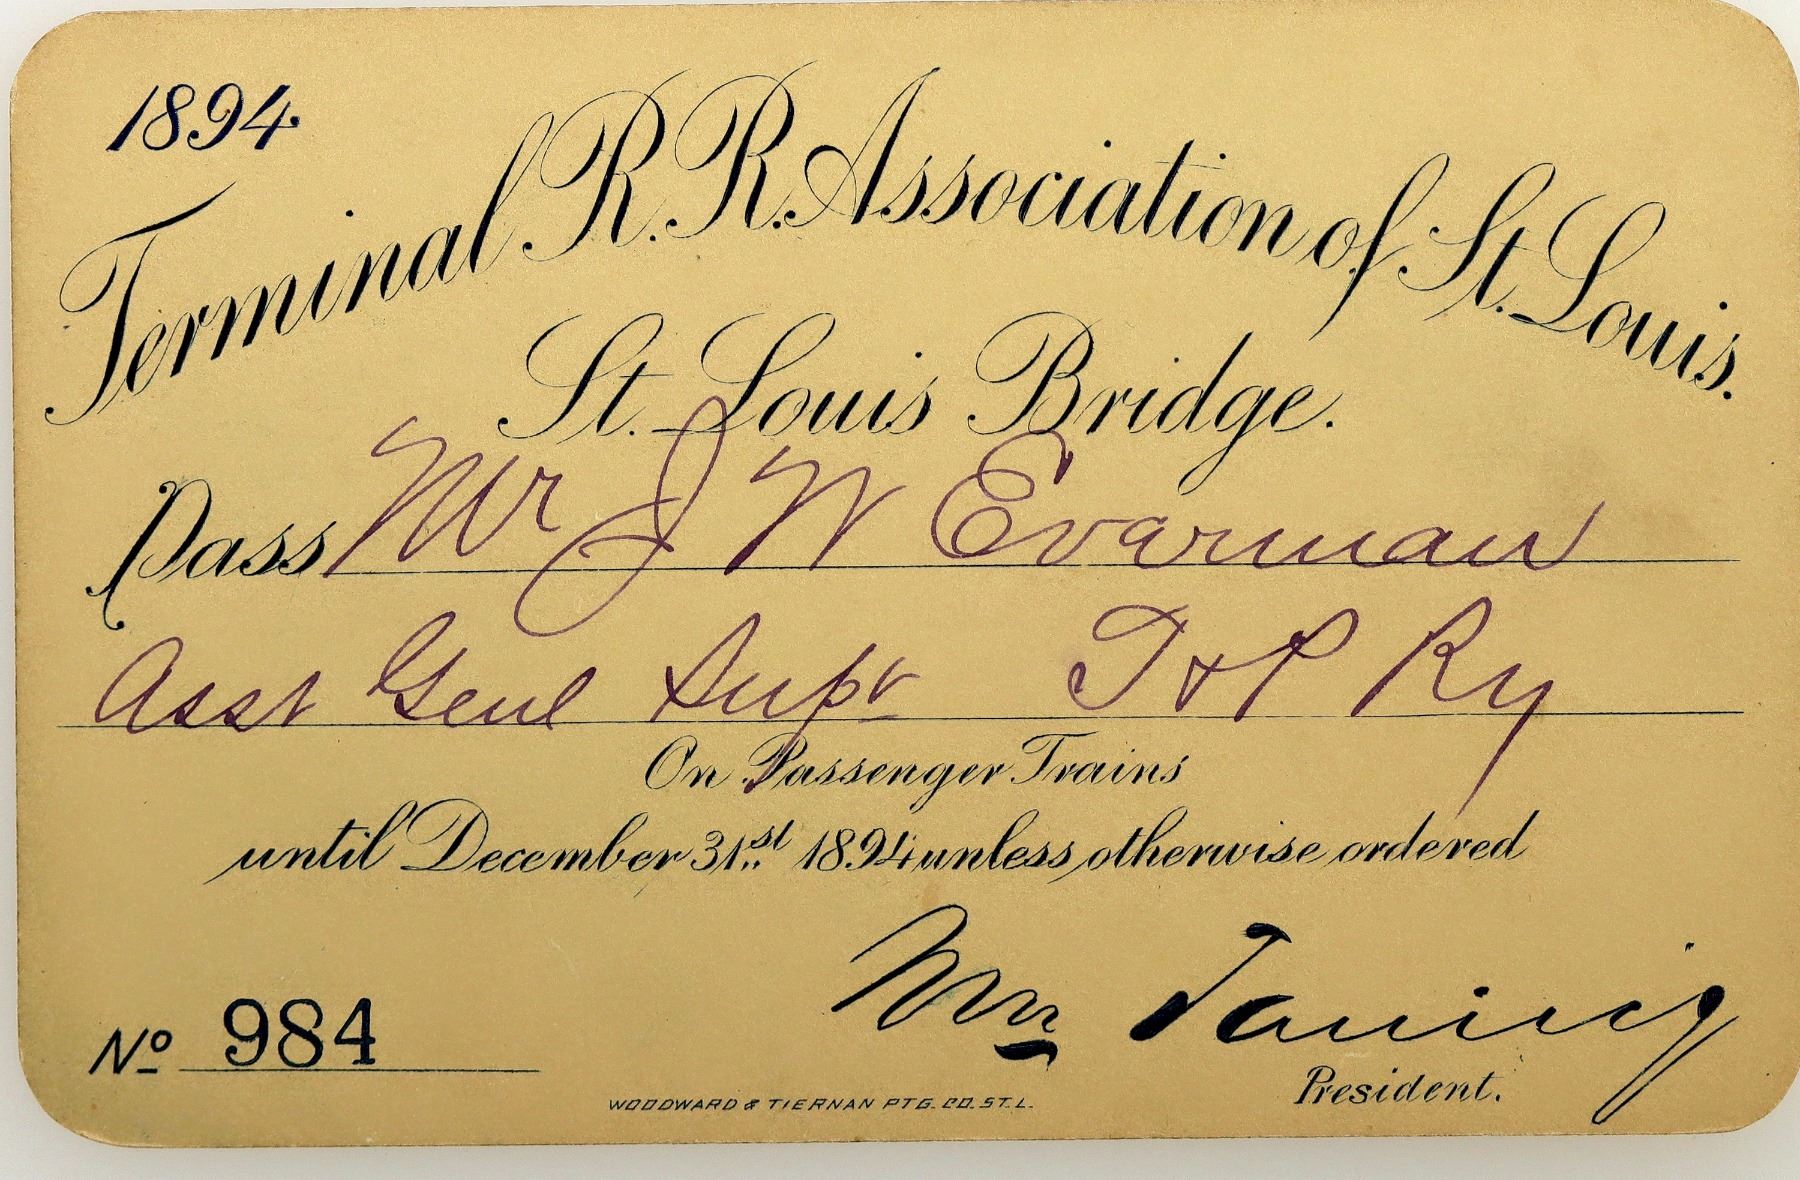 1894.
Terminal R.R. Association of St. Louis.
St. Louis Bridge.
Pass Mr J W Everman
Asst Genl Supt T & P Ry
On Passenger Trains
until December 31st 1894 unless otherwise ordered
Wm Taussig
President.
No 984
WOODWARD & TIERNAN PTG. CO. ST. L.